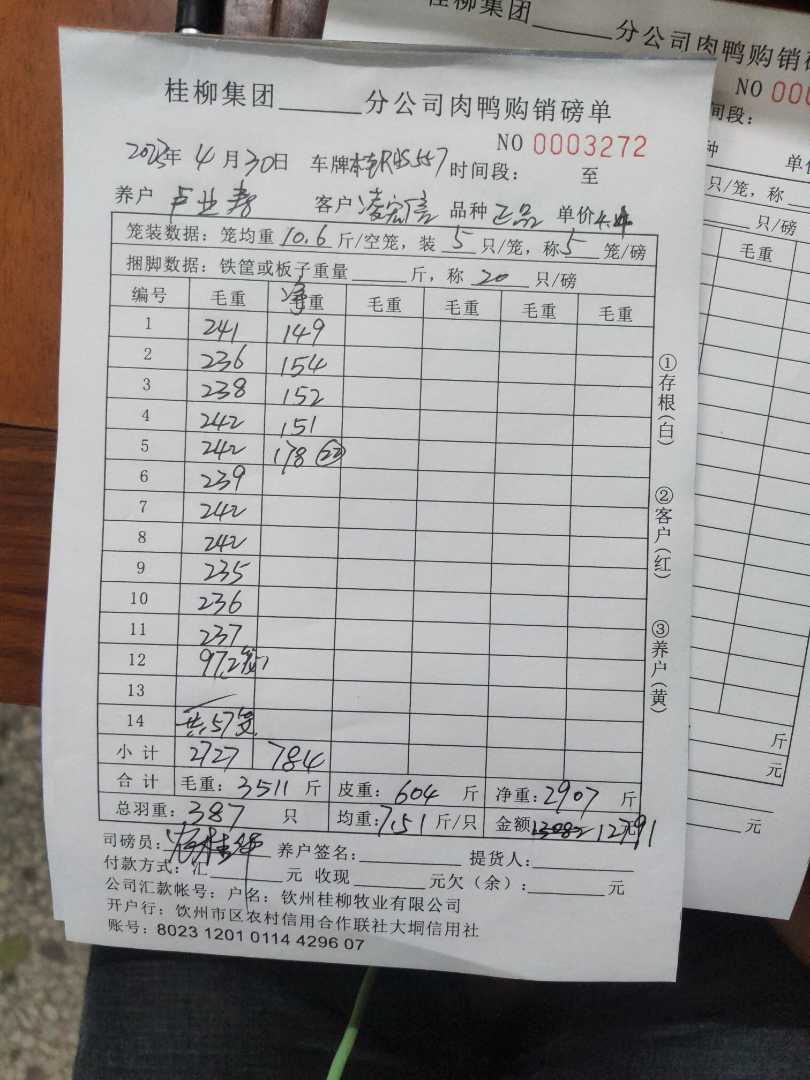 桂柳集团______分公司肉鸭购销磅单
NO 0003272
2023年 4月30日 车牌桂R45557 时间段: 至
养户 客户凌宏信 品种 正品 单价4.4
笼装数据: 笼均重 10.6 斤/空笼, 装 5 只/笼, 称 5 笼/磅
捆脚数据: 铁筐或板子重量______斤, 称 20 只/磅
编号 毛重 净重 毛重 毛重 毛重 毛重
1 241 149
2 236 154
3 238 152
4 242 151
5 242 178 (22)
6 239
7 242
8 242
9 235
10 236
11 237
12 97,2笼
13
14 共57笼
小计 2727 784
合计 毛重: 3511 斤 皮重: 604 斤 净重: 2907 斤
总羽重: 387 只 均重: 7.51 斤/只 金额 12791
司磅员: 养户签名: 提货人:
付款方式: 汇______元 收现______元欠(余):______元
公司汇款帐号: 户名: 钦州桂柳牧业有限公司
开户行: 钦州市区农村信用合作联社大垌信用社
账号: 8023 1201 0114 4296 07
①存根(白)
②客户(红)
③养户(黄)
桂柳集团______分公司肉鸭购销
NO 000
间段:
种 单价
只/笼, 称
只/磅
毛重
斤
元
元